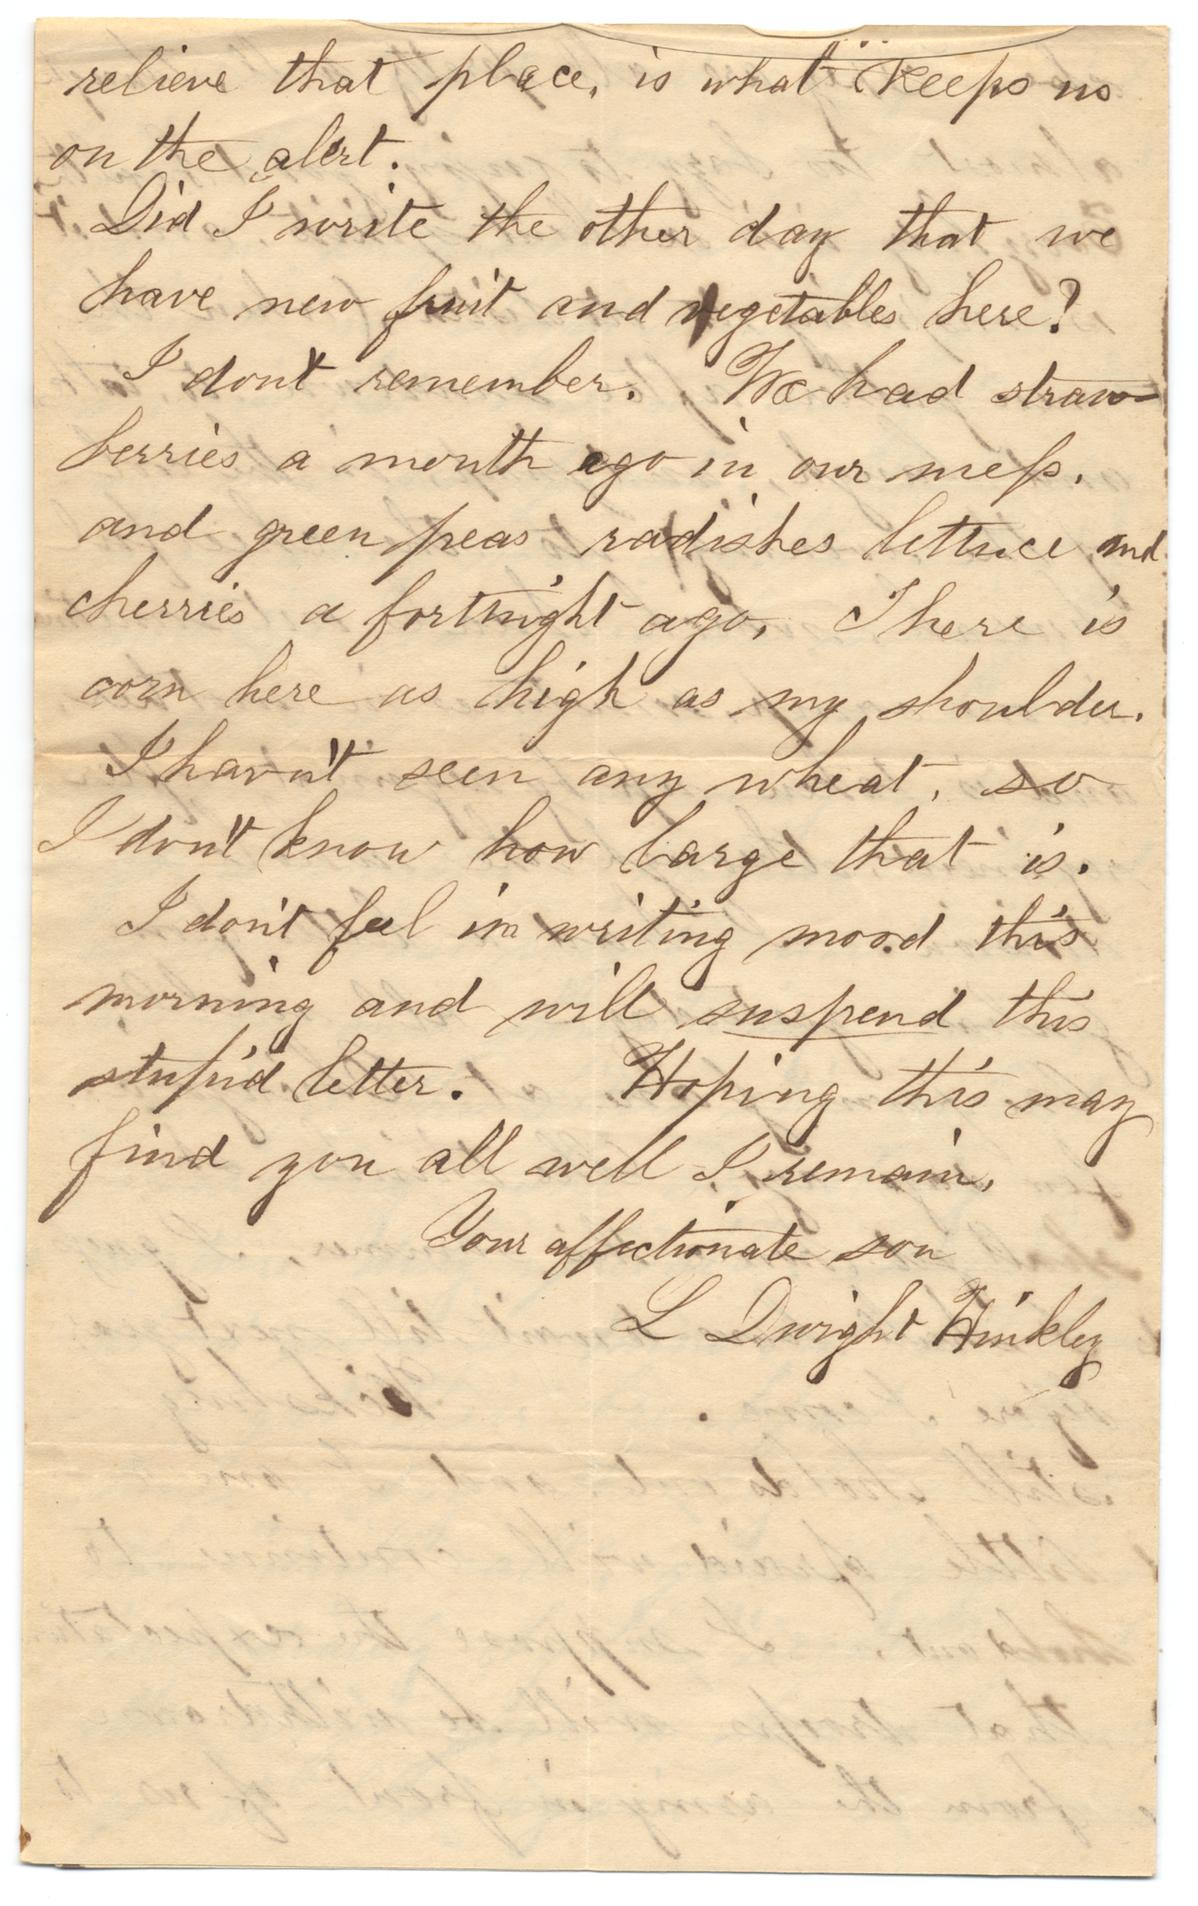 relieve that place, is what keeps us
on the alert.
Did I write the other day that we
have new fruit and vegetables here?
I don't remember. We had straw-
berries a month ago in our mess.
and green peas radishes lettuce and
cherries a fortnight ago, There is
corn here as high as my shoulder.
I havn't seen any wheat, so
I don't know how large that is.
I don't feel in writing mood this
morning and will suspend this
stupid letter. Hoping this may
find you all well I remain,
Your affectionate son
L Dwight Hinkley